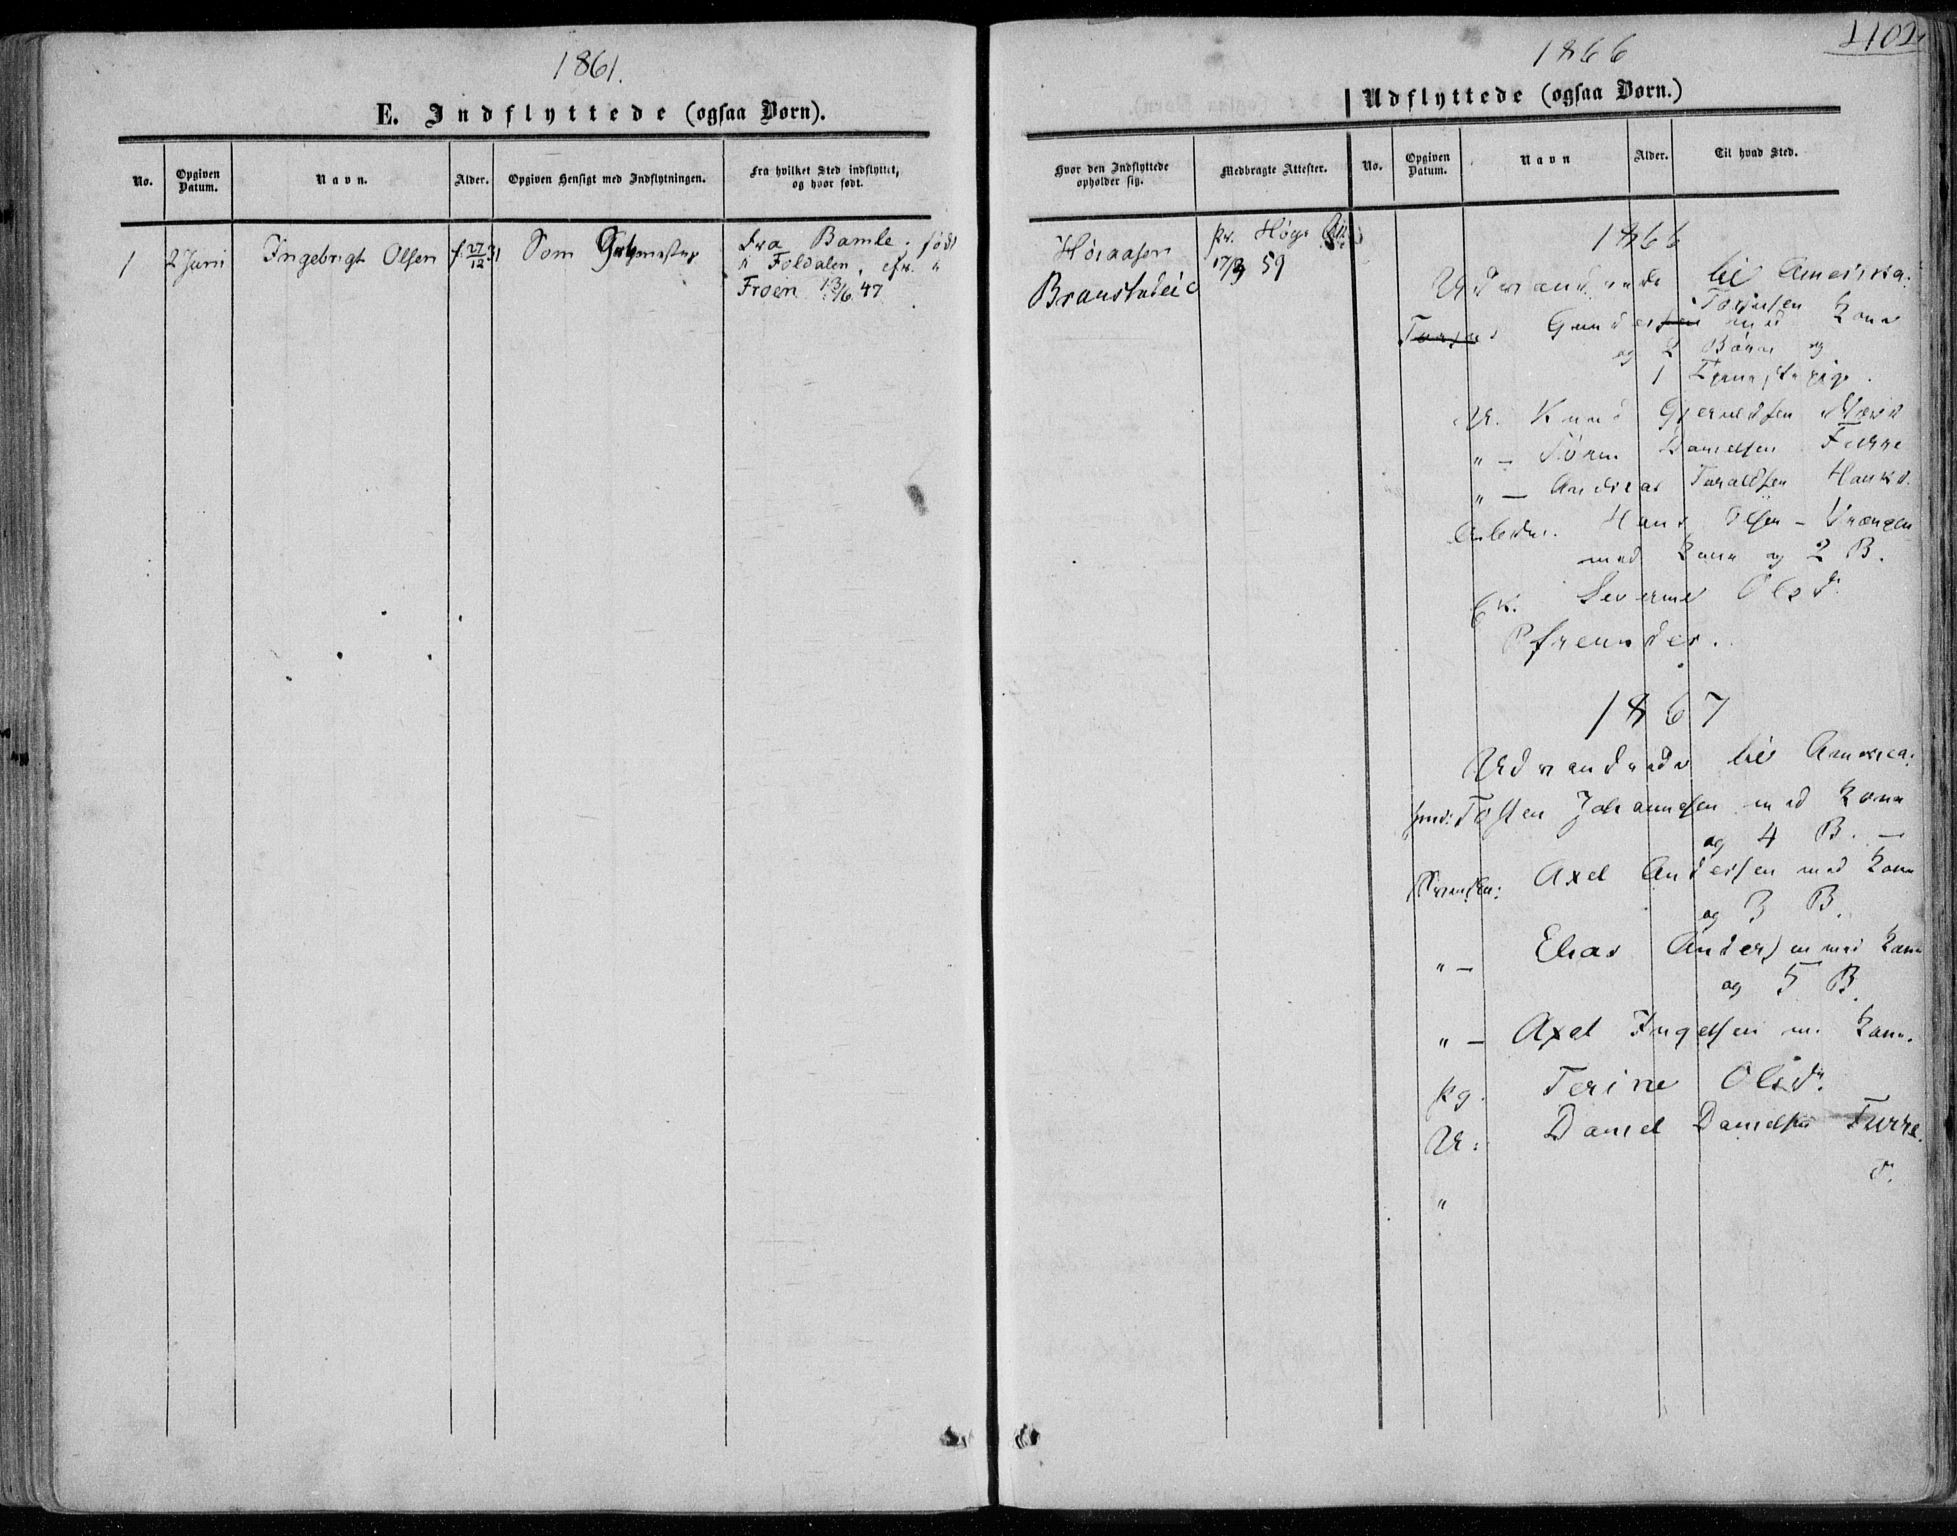 1861.
E. Indflyttede (ogsaa Børn).
No.
Opgiven Datum.
Navn.
Alder.
Opgiven Hensigt med Indflytningen.
Fra hvilket Sted indflyttet, og hvor født.
1 2 Juni Ingebrigt Olsen f. 27/12 31 Som
Fra Bamle. født
i Foldalen,
Froen 13/6 47
1866
1102
Udflyttede (ogsaa Børn.)
Hvor den Indflyttede opholder sig.
Medbragte Attester.
No.
Opgiven Datum.
Navn
Alder.
Til hvad Sted.
pr. Høgs
17/3 59
1866
Udvandrede til America:
Torjusen
Gunder med Kone
og 2 Børn og
1 Tjenestepige.
U. Knud
" — Søren Danielsen Furre
" — Andreas Taraldsen
Arbeider. Hans Olsen –
med Kone og 2 B.
Severine Olsd.
Pfreunder.
1867
Udvandrede til America:
Tosten Johannesen med Kone
og 4 B. —
Axel Andersen med Kone
og 3 B.
" — Elias Andersen med Kone
og 5 B.
" — Axel Ingelsen m. Kone.
pg. Terine Olsdr.
U: Daniel Danielsen Furre.
"